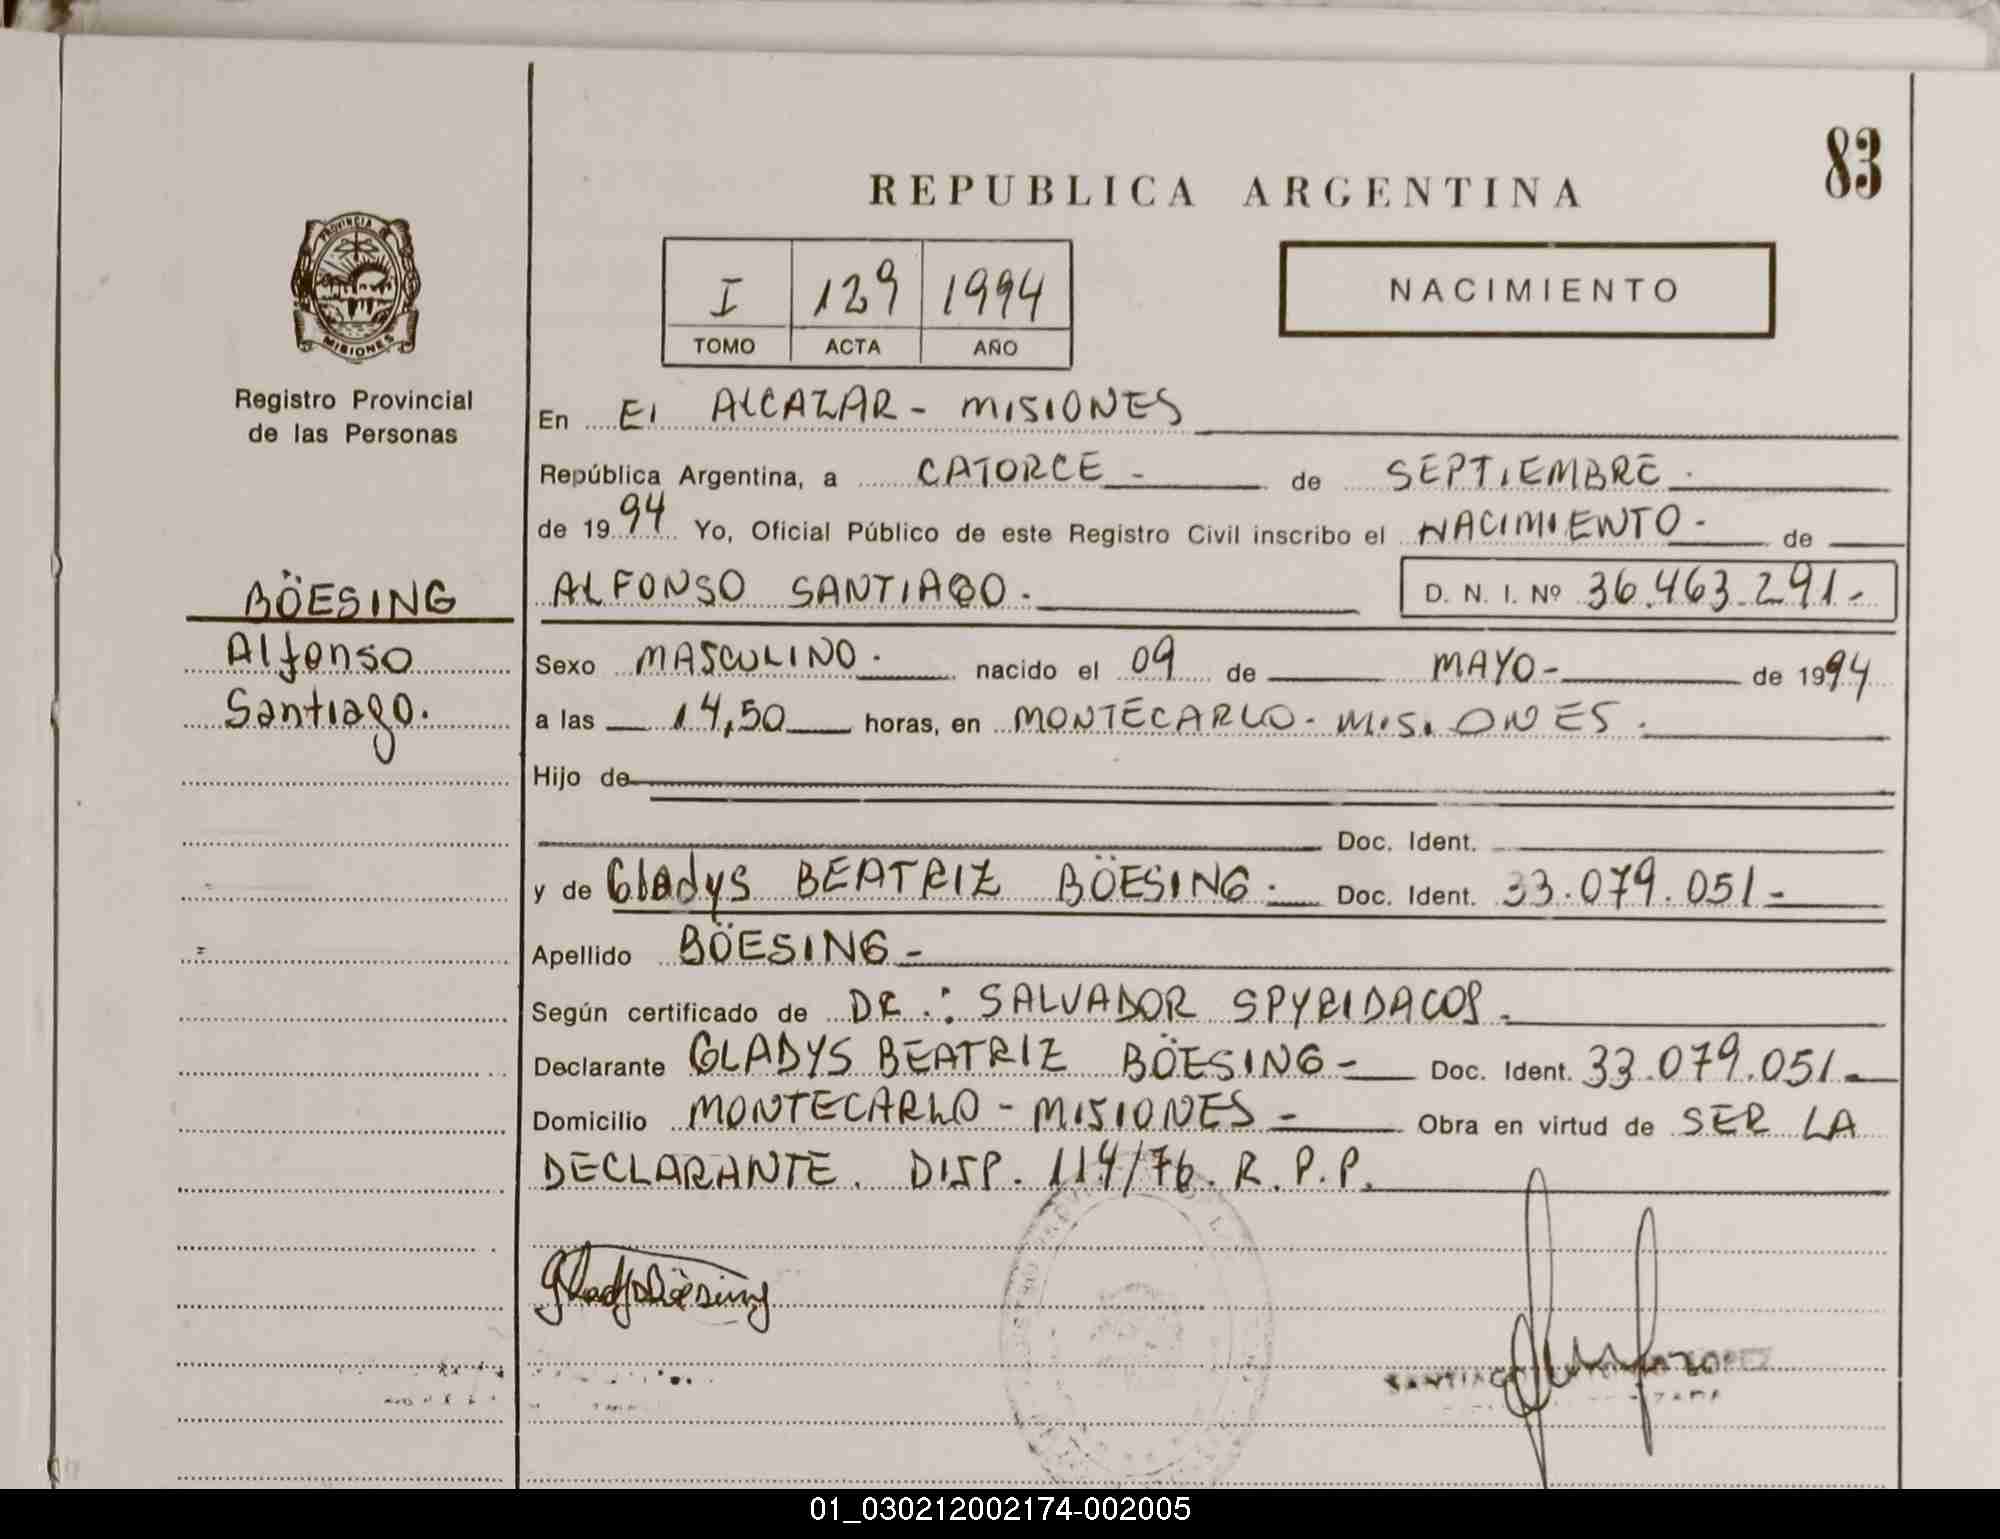 83
REPUBLICA ARGENTINA
PROVINCIA DE
MISIONES
I 129 1994
TOMO ACTA AÑO
NACIMIENTO
Registro Provincial
de las Personas
BÖESING
Alfonso
Santiago.
En El ALCAZAR - MISIONES
República Argentina, a CATORCE - de SEPTIEMBRE.
de 1994 Yo, Oficial Público de este Registro Civil inscribo el NACIMIENTO - de
ALFONSO SANTIAGO. D. N. I. Nº 36.463.291.-
Sexo MASCULINO. nacido el 09 de MAYO- de 1994
a las 14,50 horas, en MONTECARLO - MISIONES.
Hijo de
Doc. Ident.
y de Gladys BEATRIZ BÖESING. Doc. Ident. 33.079.051-
Apellido BÖESING-
Según certificado de DR.: SALVADOR SPYRIDACOS.
Declarante GLADYS BEATRIZ BÖESING- Doc. Ident. 33.079.051.-
Domicilio MONTECARLO - MISIONES - Obra en virtud de SER LA
DECLARANTE. DISP. 114/76. R.P.P.
Gladys Böesing
SANTIAGO LOPEZ
01_030212002174-002005